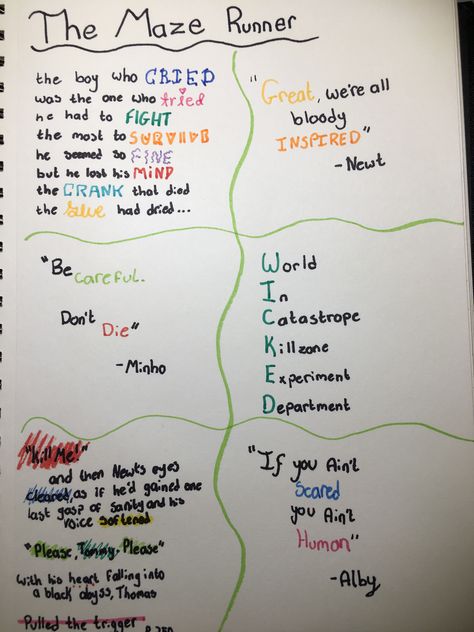 The Maze Runner
the boy who CRIED
was the one who tried
he had to FIGHT
the most to SURVIVE
he seemed so FINE
but he lost his MIND
the CRANK that died
the Glue had dried...
"Great, we're all
bloody
INSPIRED"
-Newt
"Be careful.
Don't
Die"
-Minho
World
In
Catastrope
Killzone
Experiment
Department
"Kill Me!"
and then Newts eyes
cleared, as if he'd gained one
last gasp of sanity and his
voice softened
"Please, Tommy, Please"
with his heart falling into
a black abyss, Thomas
Pulled the trigger
P.250
"If you Ain't
Scared
you Ain't
Human"
-Alby